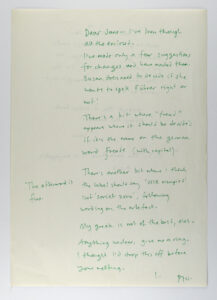 Dear Jane — I've been through
all the enclosed.
I've made only a few suggestions
for changes and have marked them.
Susan
to decide if she
wants to spell Führer right or
not!
There's a bit where "
appears where it should be
it is the name or the german
word Freute (with capital).
There's another bit where I think
the label should say,
not Soviet zone, following
working on the artefact.
The afterword is
fine.
My greek is not of the best, else.
Anything unclear, give me a ring.
I thought I'd drop this off before
your meeting.